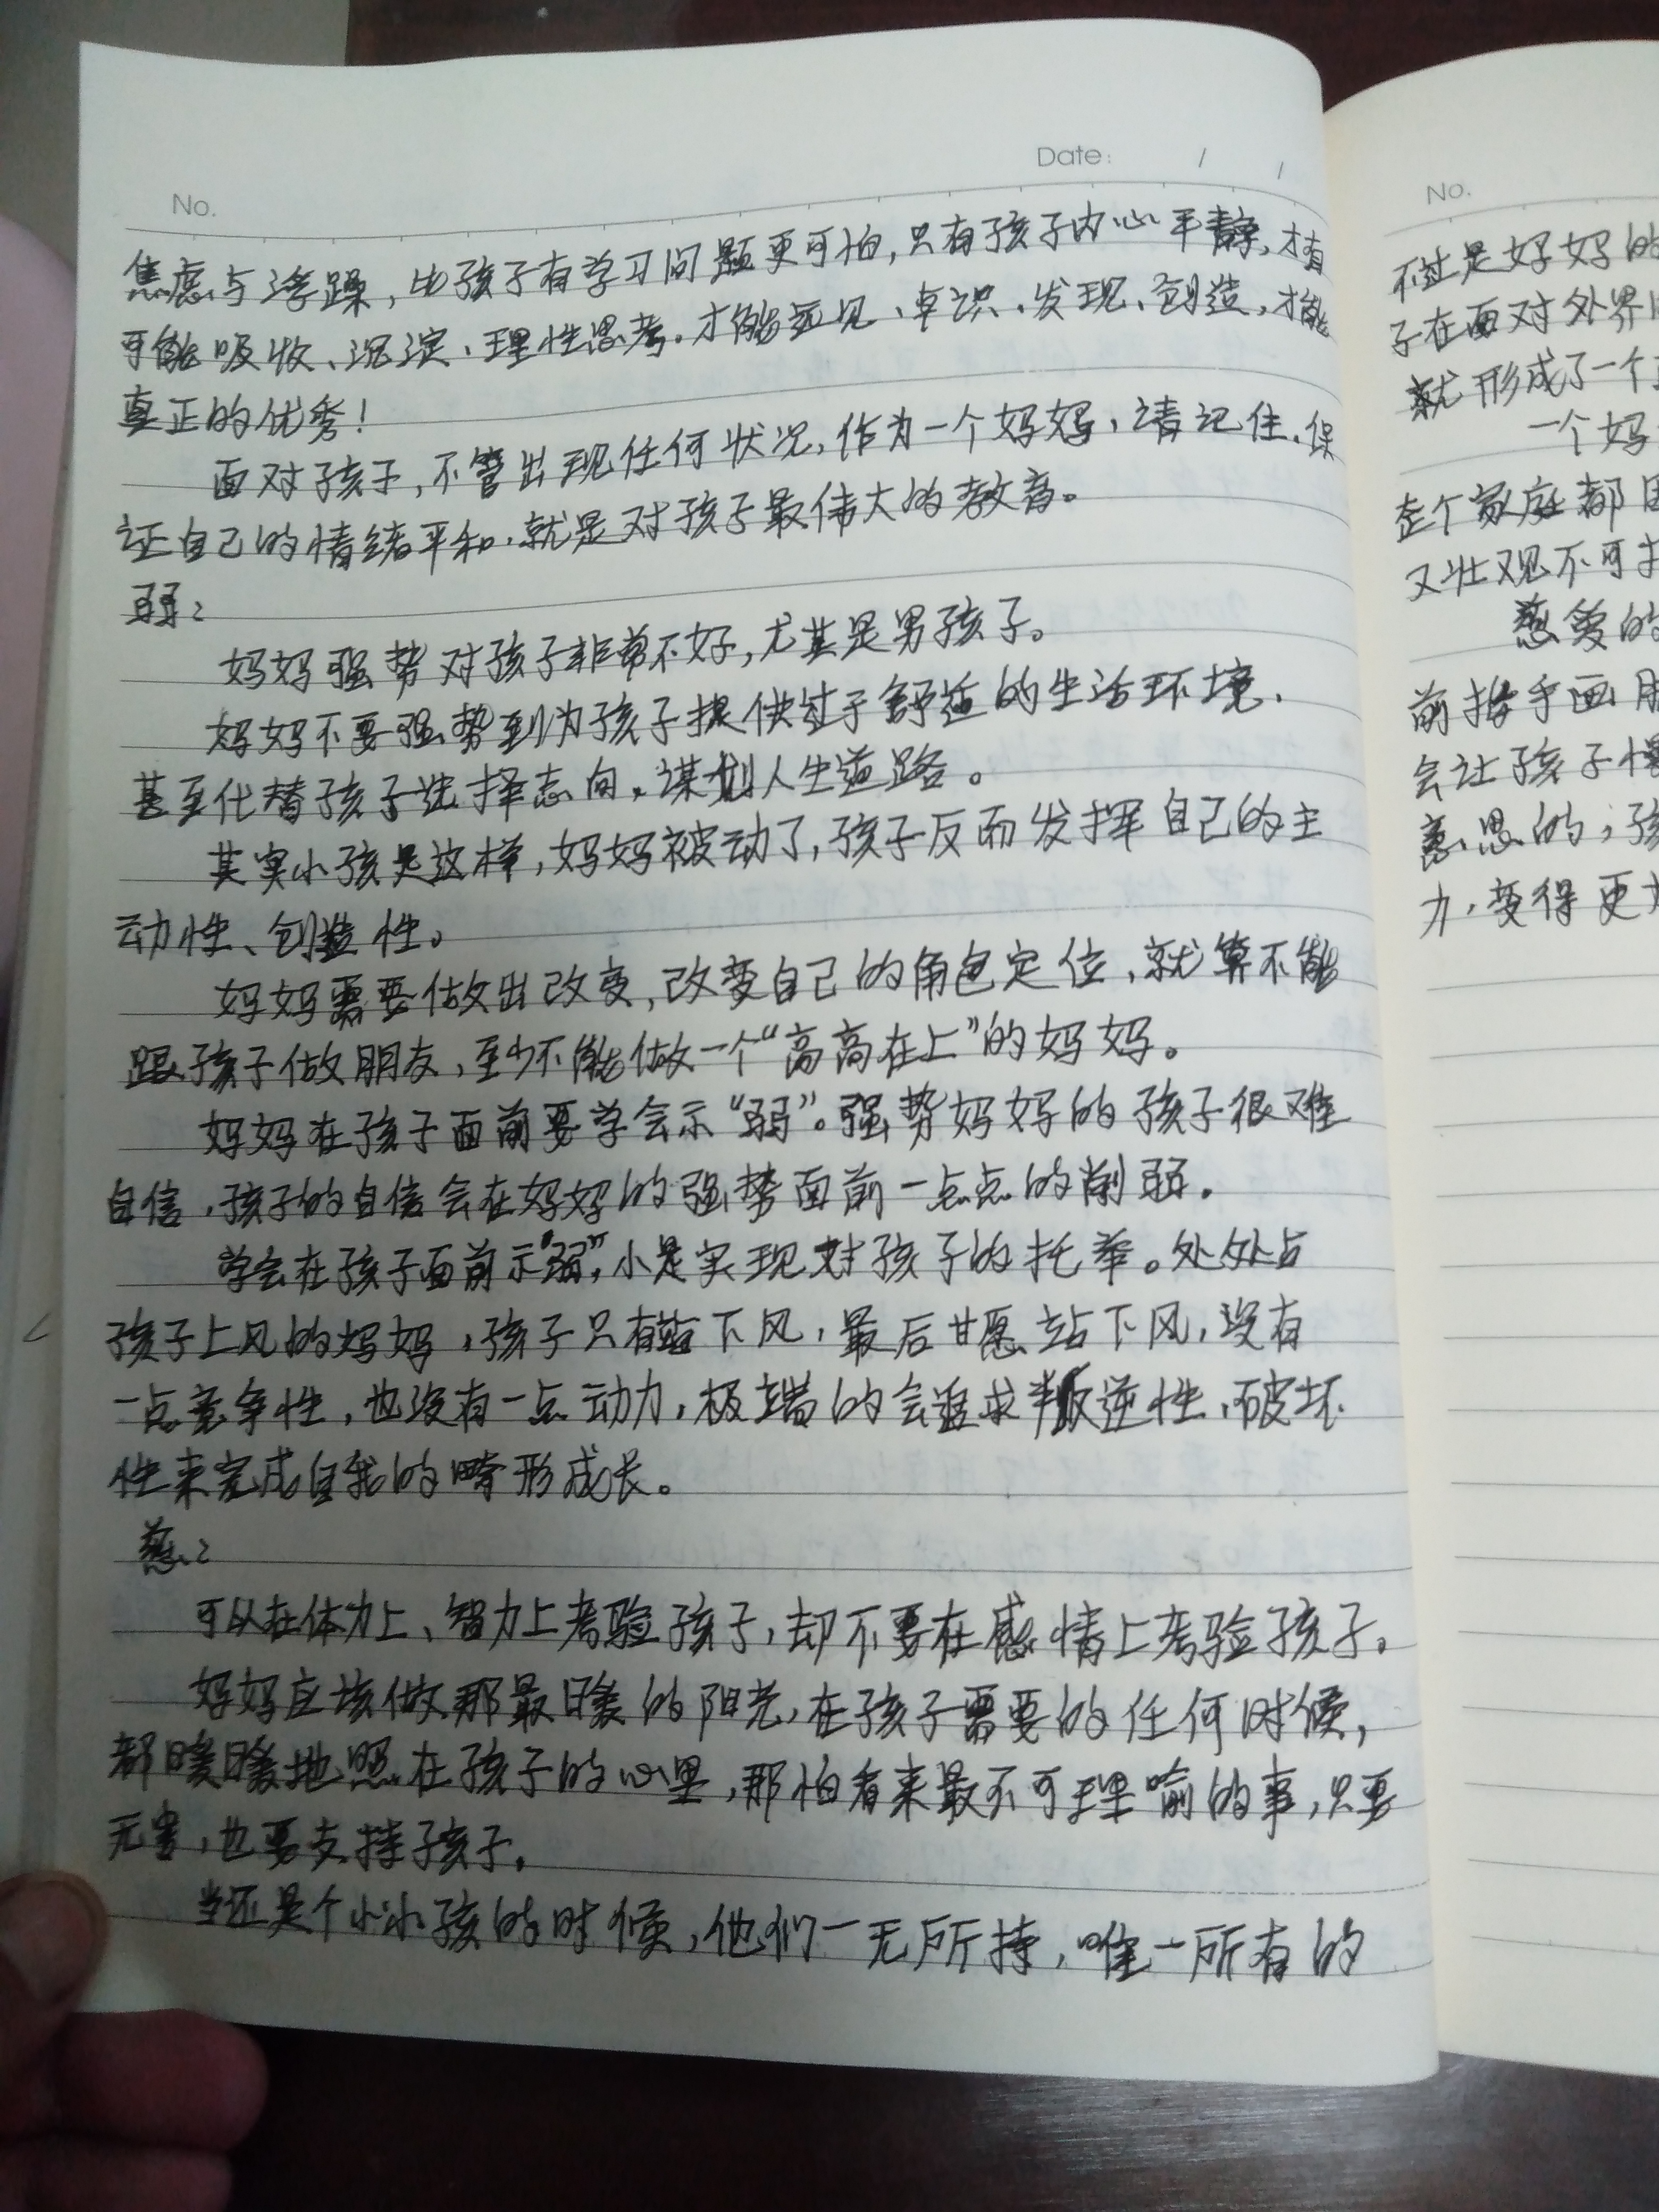 No.
Date: / /
焦虑与浮躁，比孩子有学习问题更可怕，只有孩子内心平静，才有
可能吸收、沉淀、理性思考。才能远见、卓识、发现、创造，才能
真正的优秀！
面对孩子，不管出现任何状况，作为一个妈妈，请记住、保
证自己的情绪平和，就是对孩子最伟大的教育。
弱：
妈妈强势对孩子非常不好，尤其是男孩子。
妈妈不要强势到为孩子提供过于舒适的生活环境，
甚至代替孩子选择志向，谋划人生道路。
其实小孩是这样，妈妈被动了，孩子反而发挥自己的主
动性、创造性。
妈妈需要做出改变，改变自己的角色定位，就算不能
跟孩子做朋友，至少不能做一个“高高在上”的妈妈。
妈妈在孩子面前要学会示“弱”。强势妈妈的孩子很难
自信，孩子的自信会在妈妈的强势面前一点点的削弱。
学会在孩子面前示“弱”，小是实现对孩子的托举。处处占
孩子上风的妈妈，孩子只有站下风，最后甘愿站下风，没有
一点竞争性，也没有一点动力，极端的会追求叛逆性，破坏
性来完成自我的畸形成长。
慈：
可以在体力上、智力上考验孩子，却不要在感情上考验孩子。
妈妈应该做那最暖的阳光，在孩子需要的任何时候，
都暖暖地照在孩子的心里，那怕看来最不可理喻的事，只要
无害，也要支持孩子。
当还是个小小孩的时候，他们一无所持，唯一所有的
No.
不过是妈妈的
子在面对外界
就形成了一个
一个妈
整个家庭都
又壮观不可
慈爱的
前指手画
会让孩子
意思的，孩
力，变得更